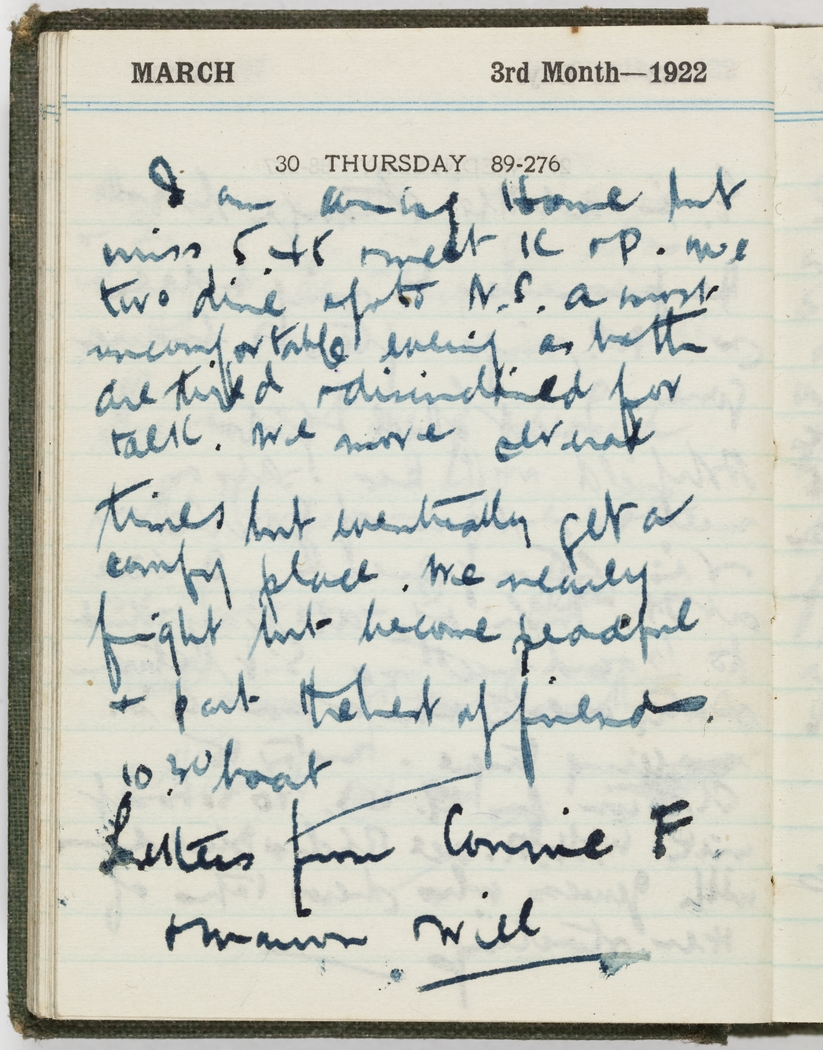 MARCH 3rd Month—1922
30 THURSDAY 89-276
I am coming Home but
miss 5 45 + meet K & P. We
two dine & go to N.S. a most
uncomfortable evening as both
are tired & disinclined for
talk. We move several
times but eventually get a
comfy place. We nearly
fight but become peaceful
+ part the best of friends.
10.30 boat
Letters from Connie F
+ Marion & Will